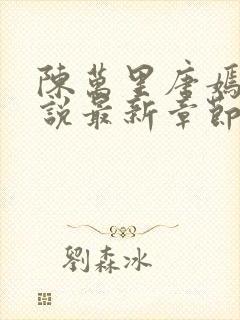 陳萬里唐嫣
說最新章節
劉森冰